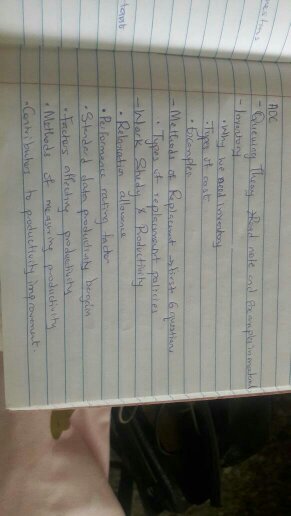 ADC
- Queuing Theory Read note and Examples in material
- Inventory
• Why we need inventory
• Types of cost
• Examples
- Methods of Replacement → first 6 questions
• Types of replacement policies
- Work Study & Productivity
• Relaxation allowance
• Performance rating factor
• Standard data productivity bargain
• Factors affecting productivity
• Methods of measuring productivity
• Contributors to productivity improvement